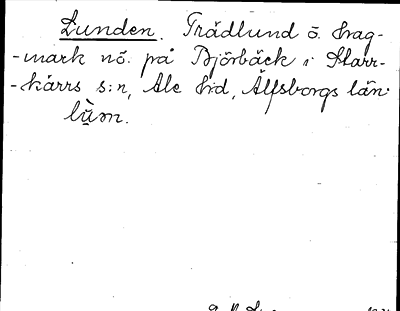 Lunden. Trädlund ö. hag-
-mark nö. på Björbäck i Starr-
-kärrs s:n, Ale hd, Älfsborgs län.
lùm.